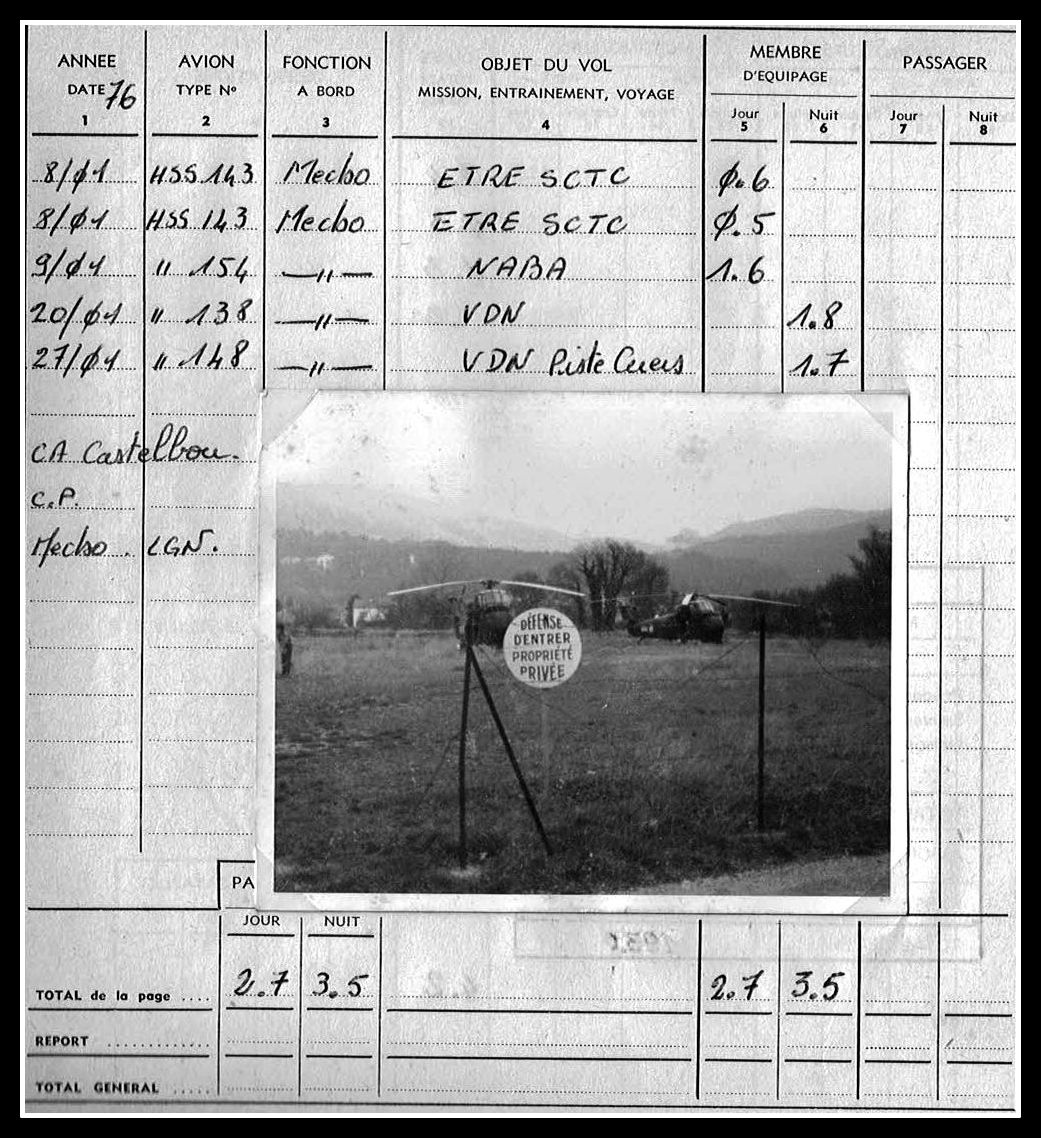 ANNEE AVION FONCTION OBJET DU VOL MEMBRE D'EQUIPAGE PASSAGER
DATE 76 TYPE Nº A BORD MISSION, ENTRAINEMENT, VOYAGE Jour Nuit Jour Nuit
1 2 3 4 5 6 7 8
8/Ø1 HSS 143 Mecbo ETRE SCTC Ø.6
8/Ø1 HSS 143 Mecbo ETRE SCTC Ø.5
9/Ø1 〃 154 —〃— NABA 1.6
20/Ø1 〃 138 —〃— VDN 1.8
27/Ø1 〃 148 —〃— VDN Piste Cuers 1.7
CA Castelbou.
C.P.
Mecbo. LGN.
DÉFENSE
D'ENTRER
PROPRIÉTÉ
PRIVÉE
PA
JOUR NUIT
TOTAL de la page .... 2.7 3.5 2.7 3.5
REPORT ............
TOTAL GENERAL .....